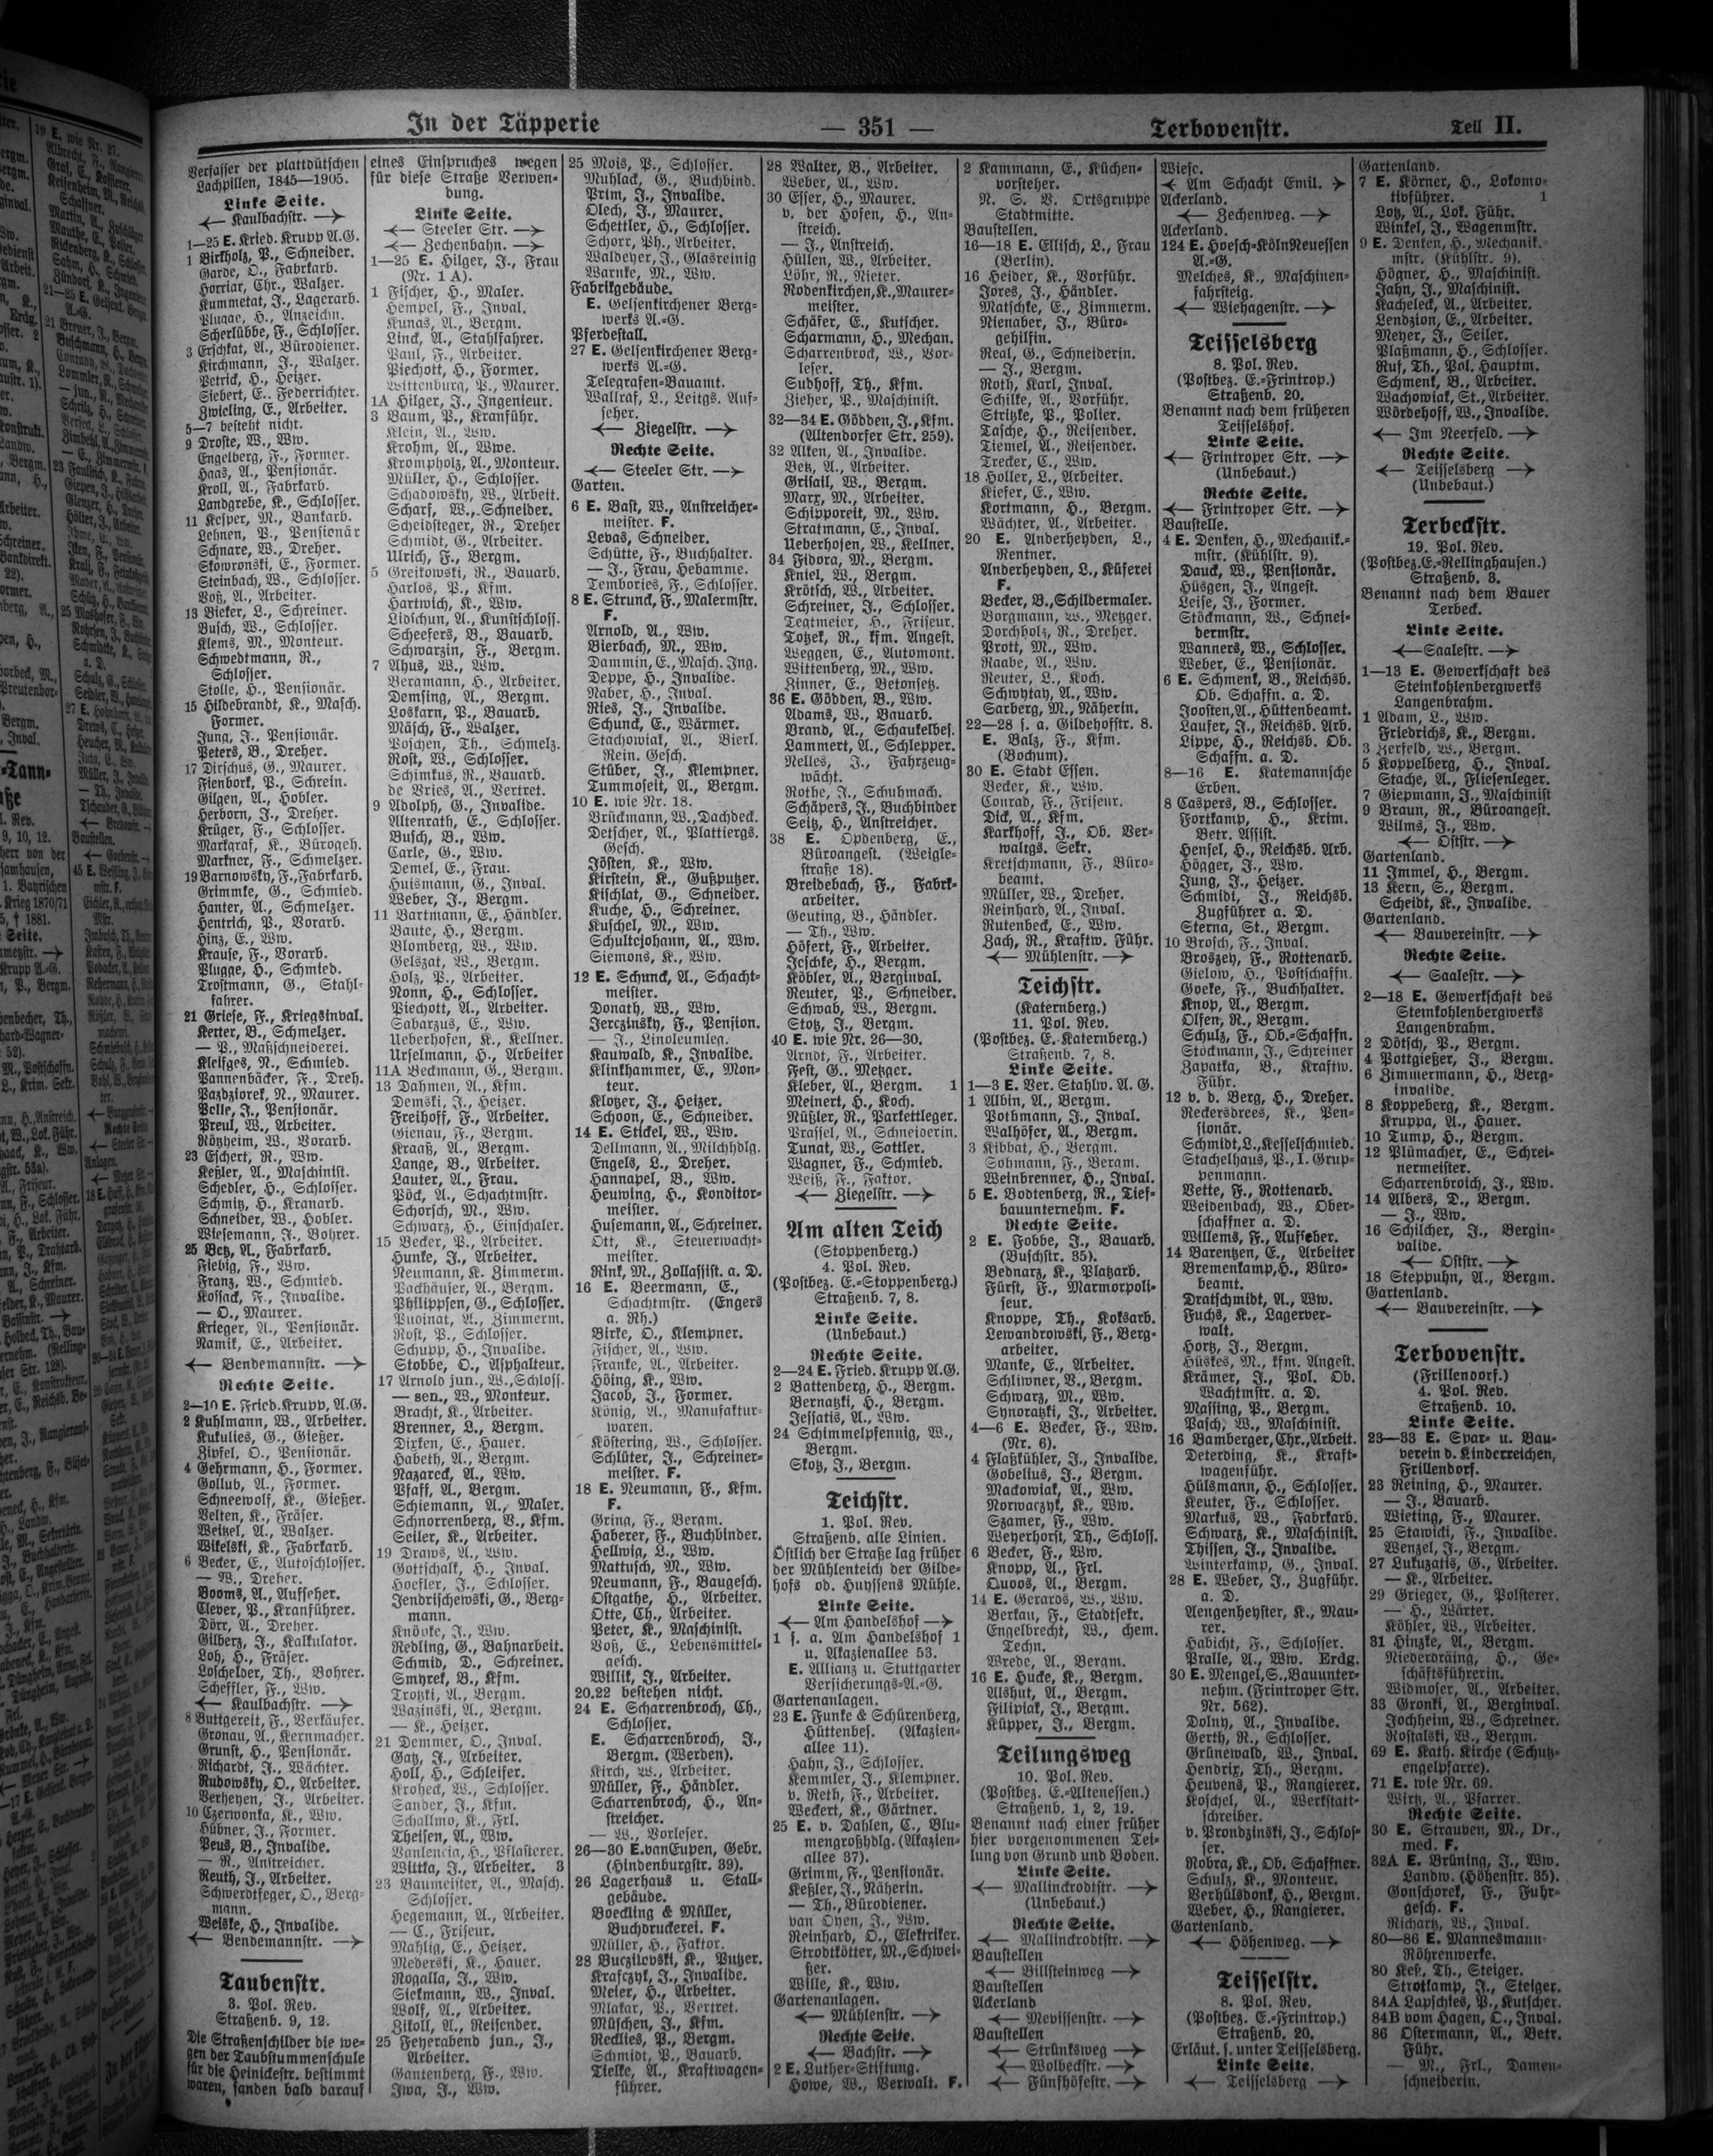 In der Täpperie
— 351 —
Terbovenstr.
Teil II.
Verfasser der plattdütschen
Lachpillen, 1845—1905.
Linke Seite.
← Kaulbachstr. →
1—25 E. Fried. Krupp A.G.
1 Birkholz, P., Schneider.
Garde, O., Fabrkarb.
Horriar, Chr., Walzer.
Kummetat, J., Lagerarb.
Plugge, H., Anzeichn.
Scherlübbe, F., Schlosser.
3 Erschkat, A., Bürodiener.
Kirchmann, J., Walzer.
Petrick, H., Heizer.
Siebert, E., Federrichter.
Zwieling, E., Arbeiter.
5—7 besteht nicht.
9 Droste, W., Ww.
Engelberg, F., Former.
Haas, A., Pensionär.
Kroll, A., Fabrkarb.
Landgrebe, K., Schlosser.
11 Kesper, M., Bankarb.
Lehnen, P., Pensionär
Schnare, W., Dreher.
Skowronski, E., Former.
Steinbach, W., Schlosser.
Voß, A., Arbeiter.
13 Bieker, L., Schreiner.
Busch, W., Schlosser.
Klems, M., Monteur.
Schwedtmann, R.,
Schlosser.
Stolle, H., Pensionär.
15 Hildebrandt, K., Masch.
Former.
Jung, J., Pensionär.
Peters, B., Dreher.
17 Dirschus, G., Maurer.
Fienbork, P., Schrein.
Gilgen, A., Hobler.
Herborn, J., Dreher.
Krüger, F., Schlosser.
Markgraf, K., Bürogeh.
Markner, F., Schmelzer.
19 Barnowsky, F., Fabrkarb.
Grimmke, G., Schmied.
Hanter, A., Schmelzer.
Hentrich, P., Vorarb.
Hinz, E., Ww.
Krause, F., Vorarb.
Plugge, H., Schmied.
Trostmann, G., Stahl-
fahrer.
21 Griese, F., Kriegsinval.
Kerter, B., Schmelzer.
— P., Maßschneiderei.
Kleifges, R., Schmied.
Pannenbäcker, F., Dreh.
Pazdziorek, R., Maurer.
Pelle, J., Pensionär.
Preul, W., Arbeiter.
Rötzheim, W., Vorarb.
23 Eschert, R., Ww.
Keßler, A., Maschinist.
Schedler, H., Schlosser.
Schmitz, H., Kranarb.
Schneider, W., Hobler.
Wiesemann, J., Bohrer.
25 Betz, A., Fabrkarb.
Fiebig, F., Ww.
Franz, W., Schmied.
Kossack, F., Invalide.
— O., Maurer.
Krieger, A., Pensionär.
Namik, E., Arbeiter.
← Bendemannstr. →
Rechte Seite.
2—10 E. Fried. Krupp, A.G.
2 Kuhlmann, W., Arbeiter.
Kukulies, G., Gießer.
Zipfel, O., Pensionär.
4 Gehrmann, H., Former.
Gollub, A., Former.
Schneewolf, K., Gießer.
Velten, K., Fräser.
Weitzel, A., Walzer.
Wikelski, K., Fabrkarb.
6 Becker, E., Autoschlosser.
— W., Dreher.
Booms, A., Aufseher.
Clever, P., Kranführer.
Dörr, A., Dreher.
Gilberg, J., Kalkulator.
Loh, H., Fräser.
Loschelder, Th., Bohrer.
Scheffler, F., Ww.
← Kaulbachstr. →
8 Buttgereit, F., Verkäufer.
Gronau, A., Kernmacher.
Grunst, H., Pensionär.
Richardt, J., Wächter.
Rudowsky, O., Arbeiter.
Verheyen, J., Arbeiter.
10 Czerwonka, K., Ww.
Hübner, J., Former.
Peus, B., Invalide.
— R., Anstreicher.
Reuth, J., Arbeiter.
Schwerdtfeger, O., Berg-
mann.
Weiske, H., Invalide.
← Bendemannstr. →
Taubenstr.
3. Pol. Rev.
Straßenb. 9, 12.
Die Straßenschilder die we-
gen der Taubstummenschule
für die Heinickestr. bestimmt
waren, fanden bald darauf
eines Einspruches wegen
für diese Straße Verwen-
dung.
Linke Seite.
← Steeler Str. →
← Zechenbahn. →
1—25 E. Hilger, J., Frau
(Nr. 1 A).
1 Fischer, H., Maler.
Hempel, F., Inval.
Kunas, A., Bergm.
Linck, A., Stahlfahrer.
Paul, F., Arbeiter.
Piechott, H., Former.
Wittenburg, P., Maurer.
1A Hilger, J., Ingenieur.
3 Baum, P., Kranführ.
Klein, A., Ww.
Krohm, A., Wwe.
Krompholz, A., Monteur.
Müller, H., Schlosser.
Schadowsky, W., Arbeit.
Scharf, W., Schneider.
Scheidsteger, R., Dreher
Schmidt, G., Arbeiter.
Ulrich, F., Bergm.
5 Greikowski, R., Bauarb.
Harlos, P., Kfm.
Hartwich, K., Ww.
Lidschun, A., Kunstschloss.
Scheefers, B., Bauarb.
Schwarzin, F., Bergm.
7 Ahus, W., Ww.
Bergmann, H., Arbeiter.
Demsing, A., Bergm.
Loskarn, P., Bauarb.
Mäsch, F., Walzer.
Poschen, Th., Schmelz.
Rost, W., Schlosser.
Schimkus, R., Bauarb.
de Vries, A., Vertret.
9 Adolph, G., Invalide.
Altenrath, E., Schlosser.
Busch, B., Ww.
Carle, G., Ww.
Demel, E., Frau.
Huismann, G., Inval.
Weber, J., Bergm.
11 Bartmann, E., Händler.
Baute, H., Bergm.
Blomberg, W., Ww.
Gelszat, W., Bergm.
Holz, P., Arbeiter.
Nonn, H., Schlosser.
Piechott, A., Arbeiter.
Sabarzus, E., Ww.
Ueberhofen, K., Kellner.
Urselmann, H., Arbeiter
11A Beckmann, G., Bergm.
13 Dahmen, A., Kfm.
Demski, J., Heizer.
Freihoff, F., Arbeiter.
Gienau, F., Bergm.
Kraaß, A., Bergm.
Lange, B., Arbeiter.
Lauter, A., Frau.
Pöck, A., Schachtmstr.
Schorsch, M., Ww.
Schwarz, H., Einschaler.
15 Becker, P., Arbeiter.
Hunke, J., Arbeiter.
Neumann, K. Zimmerm.
Packhäuser, A., Bergm.
Philippsen, G., Schlosser.
Puoinat, A., Zimmerm.
Rost, P., Schlosser.
Schupp, H., Invalide.
Stobbe, O., Asphalteur.
17 Arnold jun., W., Schloss.
— sen., W., Monteur.
Bracht, K., Arbeiter.
Brenner, L., Bergm.
Dirken, E., Hauer.
Habeth, A., Bergm.
Nazareck, A., Ww.
Pfaff, A., Bergm.
Schiemann, A., Maler.
Schnorrenberg, V., Kfm.
Seiler, K., Arbeiter.
19 Draws, A., Ww.
Gottschalk, H., Inval.
Hoefler, J., Schlosser.
Jendrischewski, G., Berg-
mann.
Knövke, J., Ww.
Redling, G., Bahnarbeit.
Schmid, D., Schreiner.
Smyrek, B., Kfm.
Trotzki, A., Bergm.
Wazinski, A., Bergm.
— K., Heizer.
21 Demmer, O., Inval.
Gatz, J., Arbeiter.
Holl, H., Schleifer.
Kroheck, W., Schlosser.
Sander, J., Kfm.
Schallmo, K., Frl.
Theisen, A., Ww.
Vanlencia, H., Pflasterer.
Wittka, J., Arbeiter. 3
23 Baumeister, A., Masch.
Schlosser.
Hegemann, A., Arbeiter.
— C., Friseur.
Mahlig, E., Heizer.
Mederski, K., Hauer.
Rogalla, J., Ww.
Siekmann, W., Inval.
Wolf, A., Arbeiter.
Zikoll, A., Reisender.
25 Feyerabend jun., J.,
Arbeiter.
Gantenberg, F., Ww.
Iwa, J., Ww.
25 Mois, P., Schlosser.
Muhlack, G., Buchbind.
Prim, J., Invalide.
Olech, J., Maurer.
Schettler, H., Schlosser.
Schorr, Ph., Arbeiter.
Waldeyer, J., Glasreinig
Warnke, M., Ww.
Fabrikgebäude.
E. Gelsenkirchener Berg-
werks A.=G.
Pferdestall.
27 E. Gelsenkirchener Berg-
werks A.=G.
Telegrafen=Bauamt.
Wallraf, L., Leitgs. Auf-
seher.
← Ziegelstr. →
Rechte Seite.
← Steeler Str. →
Garten.
6 E. Bast, W., Anstreicher-
meister. F.
Lebas, Schneider.
Schütte, F., Buchhalter.
— J., Frau, Hebamme.
Tembories, F., Schlosser.
8 E. Strunck, F., Malermstr.
F.
Arnold, A., Ww.
Bierbach, M., Ww.
Dammin, E., Masch. Ing.
Deppe, H., Invalide.
Naber, H., Inval.
Ries, J., Invalide.
Schunck, E., Wärmer.
Stachowiak, A., Vierl.
Rein. Gesch.
Stüber, J., Klempner.
Tummoseit, A., Bergm.
10 E. wie Nr. 18.
Brückmann, W., Dachdeck.
Detscher, A., Plattiergs.
Gesch.
Jösten, K., Ww.
Kirstein, K., Gußputzer.
Kischlat, G., Schneider.
Kuche, H., Schreiner.
Kuschel, M., Ww.
Schultejohann, A., Ww.
Siemons, K., Ww.
12 E. Schunck, A., Schacht-
meister.
Donath, W., Ww.
Jerczinsky, F., Pension.
— J., Linoleumleg.
Kauwald, K., Invalide.
Klinkhammer, E., Mon-
teur.
Klotzer, J., Heizer.
Schoon, E., Schneider.
14 E. Stickel, W., Ww.
Dellmann, A., Milchhdlg.
Engels, L., Dreher.
Hannapel, B., Ww.
Heuwing, H., Konditor-
meister.
Husemann, A., Schreiner.
Ott, K., Steuerwacht-
meister.
Rink, M., Zollassist. a. D.
16 E. Beermann, E.,
Schachtmstr. (Engers
a. Rh.)
Birke, O., Klempner.
Fischer, A., Ww.
Franke, A., Arbeiter.
Höing, K., Ww.
Jacob, J., Former.
König, A., Manufaktur-
waren.
Köstering, W., Schlosser.
Schlüter, J., Schreiner-
meister. F.
18 E. Neumann, F., Kfm.
F.
Gring, F., Bergm.
Haberer, F., Buchbinder.
Hellwig, L., Ww.
Mattusch, M., Ww.
Neumann, F., Baugesch.
Ostgathe, H., Arbeiter.
Otte, Ch., Arbeiter.
Peter, K., Maschinist.
Voß, E., Lebensmittel-
gesch.
Willik, J., Arbeiter.
20.22 bestehen nicht.
24 E. Scharrenbroch, Ch.,
Schlosser.
E. Scharrenbroch, J.,
Bergm. (Werden).
Kirch, W., Arbeiter.
Müller, F., Händler.
Scharrenbroch, H., An-
streicher.
— W., Vorleser.
26—30 E. van Eupen, Gebr.
(Hindenburgstr. 39).
26 Lagerhaus u. Stall-
gebäude.
Boeckling & Müller,
Buchdruckerei. F.
Müller, H., Faktor.
28 Buczilovski, K., Putzer.
Krafczyk, J., Invalide.
Meier, H., Arbeiter.
Mlakar, P., Vertret.
Müschen, J., Kfm.
Recklies, P., Bergm.
Schmidt, P., Bauarb.
Tielke, A., Kraftwagen-
führer.
28 Walter, B., Arbeiter.
Weber, A., Ww.
30 Esser, H., Maurer.
v. der Hofen, H., An-
streich.
— J., Anstreich.
Hüllen, W., Arbeiter.
Löhr, R., Nieter.
Rodenkirchen, K., Maurer-
meister.
Schäfer, E., Kutscher.
Scharmann, H., Mechan.
Scharrenbrock, W., Vor-
leser.
Sudhoff, Th., Kfm.
Zieher, P., Maschinist.
32—34 E. Gödden, J., Kfm.
(Altendorfer Str. 259).
32 Alken, A., Invalide.
Betz, A., Arbeiter.
Grisail, W., Bergm.
Marx, M., Arbeiter.
Schipporeit, M., Ww.
Stratmann, E., Inval.
Ueberhofen, W., Kellner.
34 Fidora, M., Bergm.
Kniel, W., Bergm.
Krötsch, W., Arbeiter.
Schreiner, J., Schlosser.
Tegtmeier, H., Friseur.
Totzek, R., kfm. Angest.
Weggen, E., Automont.
Wittenberg, M., Ww.
Zinner, E., Betonsetz.
36 E. Gödden, B., Ww.
Adams, W., Bauarb.
Brand, A., Schaukelbes.
Lammert, A., Schlepper.
Nelles, J., Fahrzeug-
wächt.
Rothe, J., Schuhmach.
Schäpers, J., Buchbinder
Seitz, H., Anstreicher.
38 E. Opdenberg, E.,
Büroangest. (Weigle-
straße 18).
Breidebach, F., Fabrk-
arbeiter.
Geuting, B., Händler.
— Th., Ww.
Höfert, F., Arbeiter.
Jeschke, H., Bergm.
Köbler, A., Berginval.
Reuter, P., Schneider.
Schwab, W., Bergm.
Stotz, J., Bergm.
40 E. wie Nr. 26—30.
Arndt, F., Arbeiter.
Fest, G., Metzger.
Kleber, A., Bergm. 1
Meinert, H., Koch.
Nüßler, R., Parkettleger.
Prassel, A., Schneiderin.
Tunat, W., Sattler.
Wagner, F., Schmied.
Weiß, F., Faktor.
← Ziegelstr. →
Am alten Teich
(Stoppenberg.)
4. Pol. Rev.
(Postbez. E.=Stoppenberg.)
Straßenb. 7, 8.
Linke Seite.
(Unbebaut.)
Rechte Seite.
2—24 E. Fried. Krupp A.G.
2 Battenberg, H., Bergm.
Bernatzki, H., Bergm.
Jessatis, A., Ww.
24 Schimmelpfennig, W.,
Bergm.
Skotz, J., Bergm.
Teichstr.
1. Pol. Rev.
Straßenb. alle Linien.
Östlich der Straße lag früher
der Mühlenteich der Gilde-
hofs od. Huyssens Mühle.
Linke Seite.
← Am Handelshof →
1 s. a. Am Handelshof 1
u. Akazienallee 53.
E. Allianz u. Stuttgarter
Versicherungs=A.=G.
Gartenanlagen.
23 E. Funke & Schürenberg,
Hüttenbes. (Akazien-
allee 11).
Hahn, J., Schlosser.
Kemmler, J., Klempner.
v. Reth, F., Arbeiter.
Weckert, K., Gärtner.
25 E. v. Dahlen, C., Blu-
mengroßhdlg. (Akazien-
allee 37).
Grimm, F., Pensionär.
Keßler, J., Näherin.
— Th., Bürodiener.
van Oyen, J., Ww.
Reinhard, O., Elektriker.
Strodtkötter, M., Schwei-
ßer.
Wille, K., Ww.
Gartenanlagen.
← Mühlenstr. →
Rechte Seite.
← Bachstr. →
2 E. Luther=Stiftung.
Howe, W., Verwalt. F.
2 Kammann, E., Küchen-
vorsteher.
N. S. V. Ortsgruppe
Stadtmitte.
Baustellen.
16—18 E. Ellisch, L., Frau
(Berlin).
16 Heider, K., Vorführ.
Jores, J., Händler.
Matschke, E., Zimmerm.
Nienaber, J., Büro-
gehilfin.
Real, G., Schneiderin.
— J., Bergm.
Roth, Karl, Inval.
Schilke, A., Vorführ.
Stritzke, P., Polier.
Tasche, H., Reisender.
Tiemel, A., Reisender.
Trecker, C., Ww.
18 Holler, L., Arbeiter.
Kiefer, E., Ww.
Kortmann, H., Bergm.
Wächter, A., Arbeiter.
20 E. Anderheyden, L.,
Rentner.
Anderheyden, L., Küferei
F.
Becker, B., Schildermaler.
Borgmann, W., Metzger.
Dorchholz, R., Dreher.
Prott, M., Ww.
Raabe, A., Ww.
Reuter, L., Koch.
Schwytay, A., Ww.
Sarberg, M., Näherin.
22—28 s. a. Gildehofstr. 8.
E. Balz, F., Kfm.
(Bochum).
30 E. Stadt Essen.
Becker, K., Ww.
Conrad, F., Friseur.
Dick, A., Kfm.
Karkhoff, J., Ob. Ver-
waltgs. Sekr.
Kretschmann, F., Büro-
beamt.
Müller, W., Dreher.
Reinhard, A., Inval.
Rutenbeck, E., Ww.
Zach, R., Kraftw. Führ.
← Mühlenstr. →
Teichstr.
(Katernberg.)
11. Pol. Rev.
(Postbez. E.=Katernberg.)
Straßenb. 7, 8.
Linke Seite.
1—3 E. Ver. Stahlw. A. G.
1 Albin, A., Bergm.
Pothmann, J., Inval.
Walhöfer, A., Bergm.
3 Kibbat, H., Bergm.
Sohmann, F., Bergm.
Weinbrenner, H., Inval.
5 E. Bodtenberg, R., Tief-
bauunternehm. F.
Rechte Seite.
2 E. Fobbe, J., Bauarb.
(Buschstr. 35).
Bednarz, K., Platzarb.
Fürst, F., Marmorpoli-
seur.
Knoppe, Th., Koksarb.
Lewandrowski, F., Berg-
arbeiter.
Manke, E., Arbeiter.
Schliwner, V., Bergm.
Schwarz, M., Ww.
Synoratzki, J., Arbeiter.
4—6 E. Becker, F., Ww.
(Nr. 6).
4 Flaßkühler, J., Invalide.
Gobelius, J., Bergm.
Mackowiak, A., Ww.
Norwarzyk, K., Ww.
Szamer, F., Ww.
Weyerhorst, Th., Schloss.
6 Becker, F., Ww.
Knopp, A., Frl.
Quoos, A., Bergm.
14 E. Gerards, W., Ww.
Berkau, F., Stadtsekr.
Engelbrecht, W., chem.
Techn.
Wrede, A., Bergm.
16 E. Hucke, K., Bergm.
Alshut, A., Bergm.
Filipiak, J., Bergm.
Küpper, J., Bergm.
Teilungsweg
10. Pol. Rev.
(Postbez. E.=Altenessen.)
Straßenb. 1, 2, 19.
Benannt nach einer früher
hier vorgenommenen Tei-
lung von Grund und Boden.
Linke Seite.
← Mallinckrodtstr. →
(Unbebaut.)
Rechte Seite.
← Mallinckrodtstr. →
Baustellen
← Billsteinweg →
Baustellen
Ackerland
← Mevissenstr. →
Baustellen
← Strunksweg →
← Wolbeckstr. →
← Fünfhöfestr. →
Wiese.
← Am Schacht Emil. →
Ackerland.
← Zechenweg. →
Ackerland.
124 E. Hoesch=KölnNeuessen
A.=G.
Melches, K., Maschinen-
fahrsteig.
← Wiehagenstr. →
Teisselsberg
8. Pol. Rev.
(Postbez. E.=Frintrop.)
Straßenb. 20.
Benannt nach dem früheren
Teisselshof.
Linke Seite.
← Frintroper Str. →
(Unbebaut.)
Rechte Seite.
← Frintroper Str. →
Baustelle.
4 E. Denken, H., Mechanik.=
mstr. (Kühlstr. 9).
Dauck, W., Pensionär.
Hüsgen, J., Angest.
Leise, J., Former.
Stöckmann, W., Schnei-
dermstr.
Wanners, W., Schlosser.
Weber, E., Pensionär.
6 E. Schmenk, B., Reichsb.
Ob. Schaffn. a. D.
Joosten, A., Hüttenbeamt.
Laufer, J., Reichsb. Arb.
Lippe, H., Reichsb. Ob.
Schaffn. a. D.
8—16 E. Katemannsche
Erben.
8 Caspers, B., Schlosser.
Fortkamp, H., Krim.
Betr. Assist.
Hensel, H., Reichsb. Arb.
Högger, J., Ww.
Jung, J., Heizer.
Schmidt, J., Reichsb.
Zugführer a. D.
Sterna, St., Bergm.
10 Brosch, F., Inval.
Broszey, F., Rottenarb.
Gielow, H., Postschaffn.
Goeke, F., Buchhalter.
Knop, A., Bergm.
Olsen, R., Bergm.
Schulz, F., Ob.=Schaffn.
Stockmann, J., Schreiner
Zapatka, B., Kraftw.
Führ.
12 v. d. Berg, H., Dreher.
Reckersdrees, K., Pen-
sionär.
Schmidt, L., Kesselschmied.
Stachelhaus, P., I. Grup-
penmann.
Vette, F., Rottenarb.
Weidenbach, W., Ober-
schaffner a. D.
Willems, F., Aufseher.
14 Barentzen, E., Arbeiter
Bremenkamp, H., Büro-
beamt.
Dratschmidt, A., Ww.
Fuchs, K., Lagerver-
walt.
Hortz, J., Bergm.
Hüskes, M., kfm. Angest.
Krämer, J., Pol. Ob.
Wachtmstr. a. D.
Massing, P., Bergm.
Pasch, W., Maschinist.
16 Bamberger, Chr., Arbeit.
Deterding, K., Kraft-
wagenführ.
Hülsmann, H., Schlosser.
Keuter, F., Schlosser.
Markus, W., Fabrkarb.
Schwarz, K., Maschinist.
Thissen, J., Invalide.
Winterkamp, G., Inval.
28 E. Weber, J., Zugführ.
a. D.
Aengenheyster, K., Mau-
rer.
Habicht, F., Schlosser.
Pralle, A., Ww. Erdg.
30 E. Mengel, S., Bauunter-
nehm. (Frintroper Str.
Nr. 562).
Dolny, A., Invalide.
Gerth, R., Schlosser.
Grünewald, W., Inval.
Hendrix, Th., Bergm.
Heubens, P., Rangierer.
Koschel, A., Werkstatt-
schreiber.
v. Prondzinski, J., Schlos-
ser.
Robra, K., Ob. Schaffner.
Schulz, K., Monteur.
Verhülsdonk, H., Bergm.
Weber, H., Rangierer.
Gartenland.
← Höhenweg. →
Teisselstr.
8. Pol. Rev.
(Postbez. E.=Frintrop.)
Straßenb. 20.
Erläut. s. unter Teisselsberg.
Linke Seite.
← Teisselsberg →
Gartenland.
7 E. Körner, H., Lokomo-
tivführer. 1
Lotz, A., Lok. Führ.
Winkel, J., Wagenmstr.
9 E. Denken, H., Mechanik.=
mstr. (Kühlstr. 9).
Högner, H., Maschinist.
Jahn, J., Maschinist.
Kacheleck, A., Arbeiter.
Lendzion, E., Arbeiter.
Meyer, J., Seiler.
Plaßmann, H., Schlosser.
Ruf, Th., Pol. Hauptm.
Schmenk, B., Arbeiter.
Wachowiak, St., Arbeiter.
Wördehoff, W., Invalide.
← Im Neerfeld. →
Rechte Seite.
← Teisselsberg →
(Unbebaut.)
Terbeckstr.
19. Pol. Rev.
(Postbez. E.=Rellinghausen.)
Straßenb. 3.
Benannt nach dem Bauer
Terbeck.
Linke Seite.
← Saalestr. →
1—13 E. Gewerkschaft des
Steinkohlenbergwerks
Langenbrahm.
1 Adam, L., Ww.
Friedrichs, K., Bergm.
3 Herfeld, W., Bergm.
5 Koppelberg, H., Inval.
Stache, A., Fliesenleger.
7 Giepmann, J., Maschinist
9 Braun, R., Büroangest.
Wilms, J., Ww.
← Oststr. →
Gartenland.
11 Immel, H., Bergm.
13 Kern, S., Bergm.
Scheidt, K., Invalide.
Gartenland.
← Bauvereinstr. →
Rechte Seite.
← Saalestr. →
2—18 E. Gewerkschaft des
Steinkohlenbergwerks
Langenbrahm.
2 Dötsch, P., Bergm.
4 Pottgießer, J., Bergm.
6 Zimmermann, H., Berg-
invalide.
8 Koppeberg, K., Bergm.
Kruppa, A., Hauer.
10 Tump, H., Bergm.
12 Plümacher, E., Schrei-
nermeister.
Scharrenbroich, J., Ww.
14 Albers, D., Bergm.
— J., Ww.
16 Schilcher, J., Bergin-
valide.
← Oststr. →
18 Steppuhn, A., Bergm.
Gartenland.
← Bauvereinstr. →
Terbovenstr.
(Frillendorf.)
4. Pol. Rev.
Straßenb. 10.
Linke Seite.
23—33 E. Spar- u. Bau-
verein d. Kinderreichen,
Frillendorf.
23 Reining, H., Maurer.
— J., Bauarb.
Wieting, F., Maurer.
25 Stawicki, F., Invalide.
Wenzel, J., Bergm.
27 Lukuzatis, G., Arbeiter.
— K., Arbeiter.
29 Grieger, G., Polsterer.
— H., Wärter.
Köhler, W., Arbeiter.
31 Hinzke, A., Bergm.
Niederdräing, H., Ge-
schäftsführerin.
Widmoser, A., Arbeiter.
33 Gronki, A., Berginval.
Jochheim, W., Schreiner.
Rostalski, W., Bergm.
69 E. Kath. Kirche (Schutz-
engelpfarre).
71 E. wie Nr. 69.
Wirtz, A., Pfarrer.
Rechte Seite.
30 E. Strauven, M., Dr.,
med. F.
32A E. Brüning, J., Ww.
Landw. (Höhenstr. 35).
Gonschorek, F., Fuhr-
gesch. F.
Richartz, W., Inval.
80—86 E. Mannesmann-
Röhrenwerke.
80 Kes, Th., Steiger.
Strotkamp, J., Steiger.
84A Lapschies, P., Kutscher.
84B vom Hagen, O., Inval.
86 Ostermann, A., Betr.
Führ.
— M., Frl., Damen-
schneiderin.